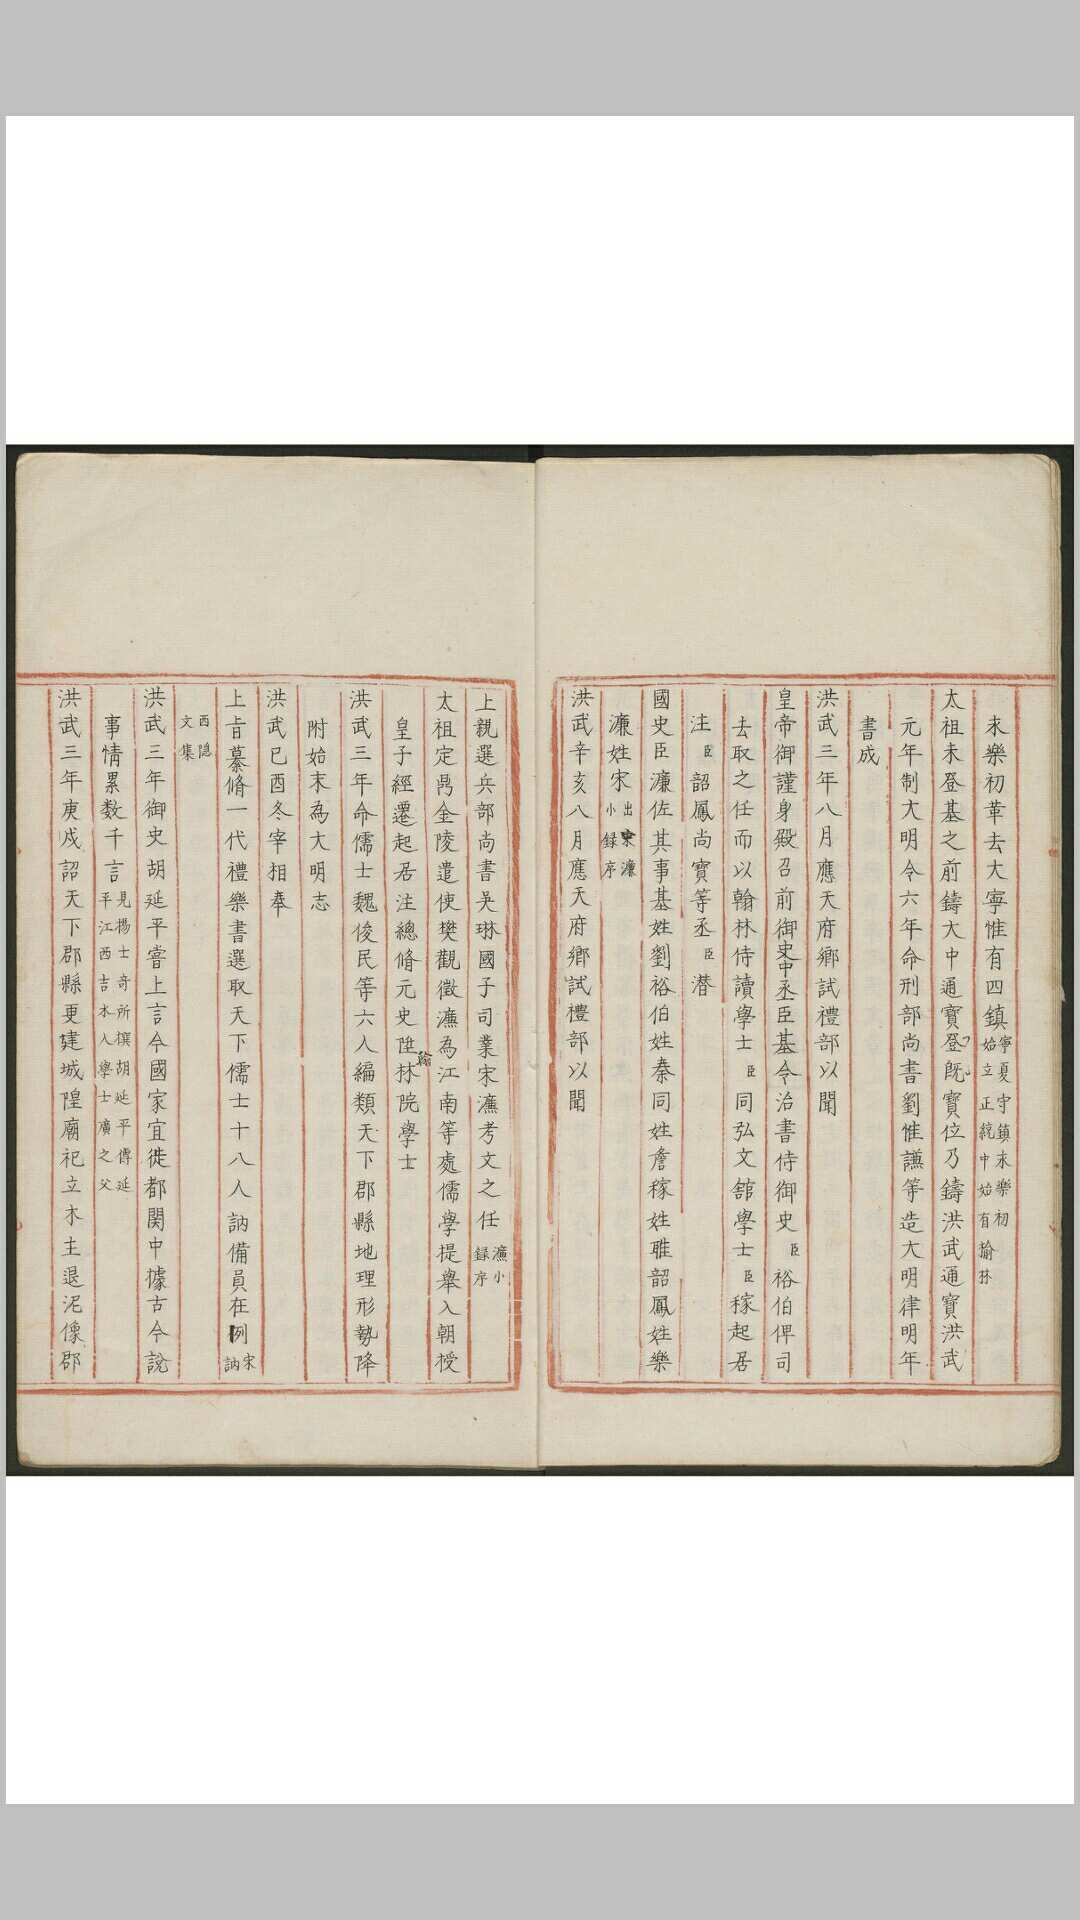 永樂初革去大寧惟有四鎮寧夏守鎮永樂初
始立正統中始有榆林
太祖未登基之前鑄大中通寶登既寶位乃鑄洪武通寶洪武
元年制大明令六年命刑部尚書劉惟謙等造大明律明年
書成
洪武三年八月應天府鄉試禮部以聞
皇帝御謹身殿召前御史中丞臣基今治書侍御史臣裕伯俾司
去取之任而以翰林侍讀學士臣同弘文舘學士臣稼起居
注臣韶鳳尚寶等丞臣潜
國史臣濂佐其事基姓劉裕伯姓秦同姓詹稼姓睢韶鳳姓樂
濂姓宋出宋濂
小録序
洪武辛亥八月應天府鄉試禮部以聞
上親選兵部尚書吴琳國子司業宋濂考文之任濂小
録序
太祖定鼎金陵遣使樊觀徵濂為江南等處儒學提舉入朝授
皇子經遷起居注總脩元史陞翰林院學士
洪武三年命儒士魏俊民等六人編類天下郡縣地理形勢降
附始末為大明志
洪武已酉冬宰相奉
上㫖纂脩一代禮樂書選取天下儒士十八人訥備員在例宋
訥
西隠
文集
洪武三年御史胡延平嘗上言今國家宜徙都関中據古今說
事情累数千言見楊士竒所撰胡延平傳延
平江西吉水人學士廣之父
洪武三年庚戍詔天下郡縣更建城隍廟祀立木主退泥像郡